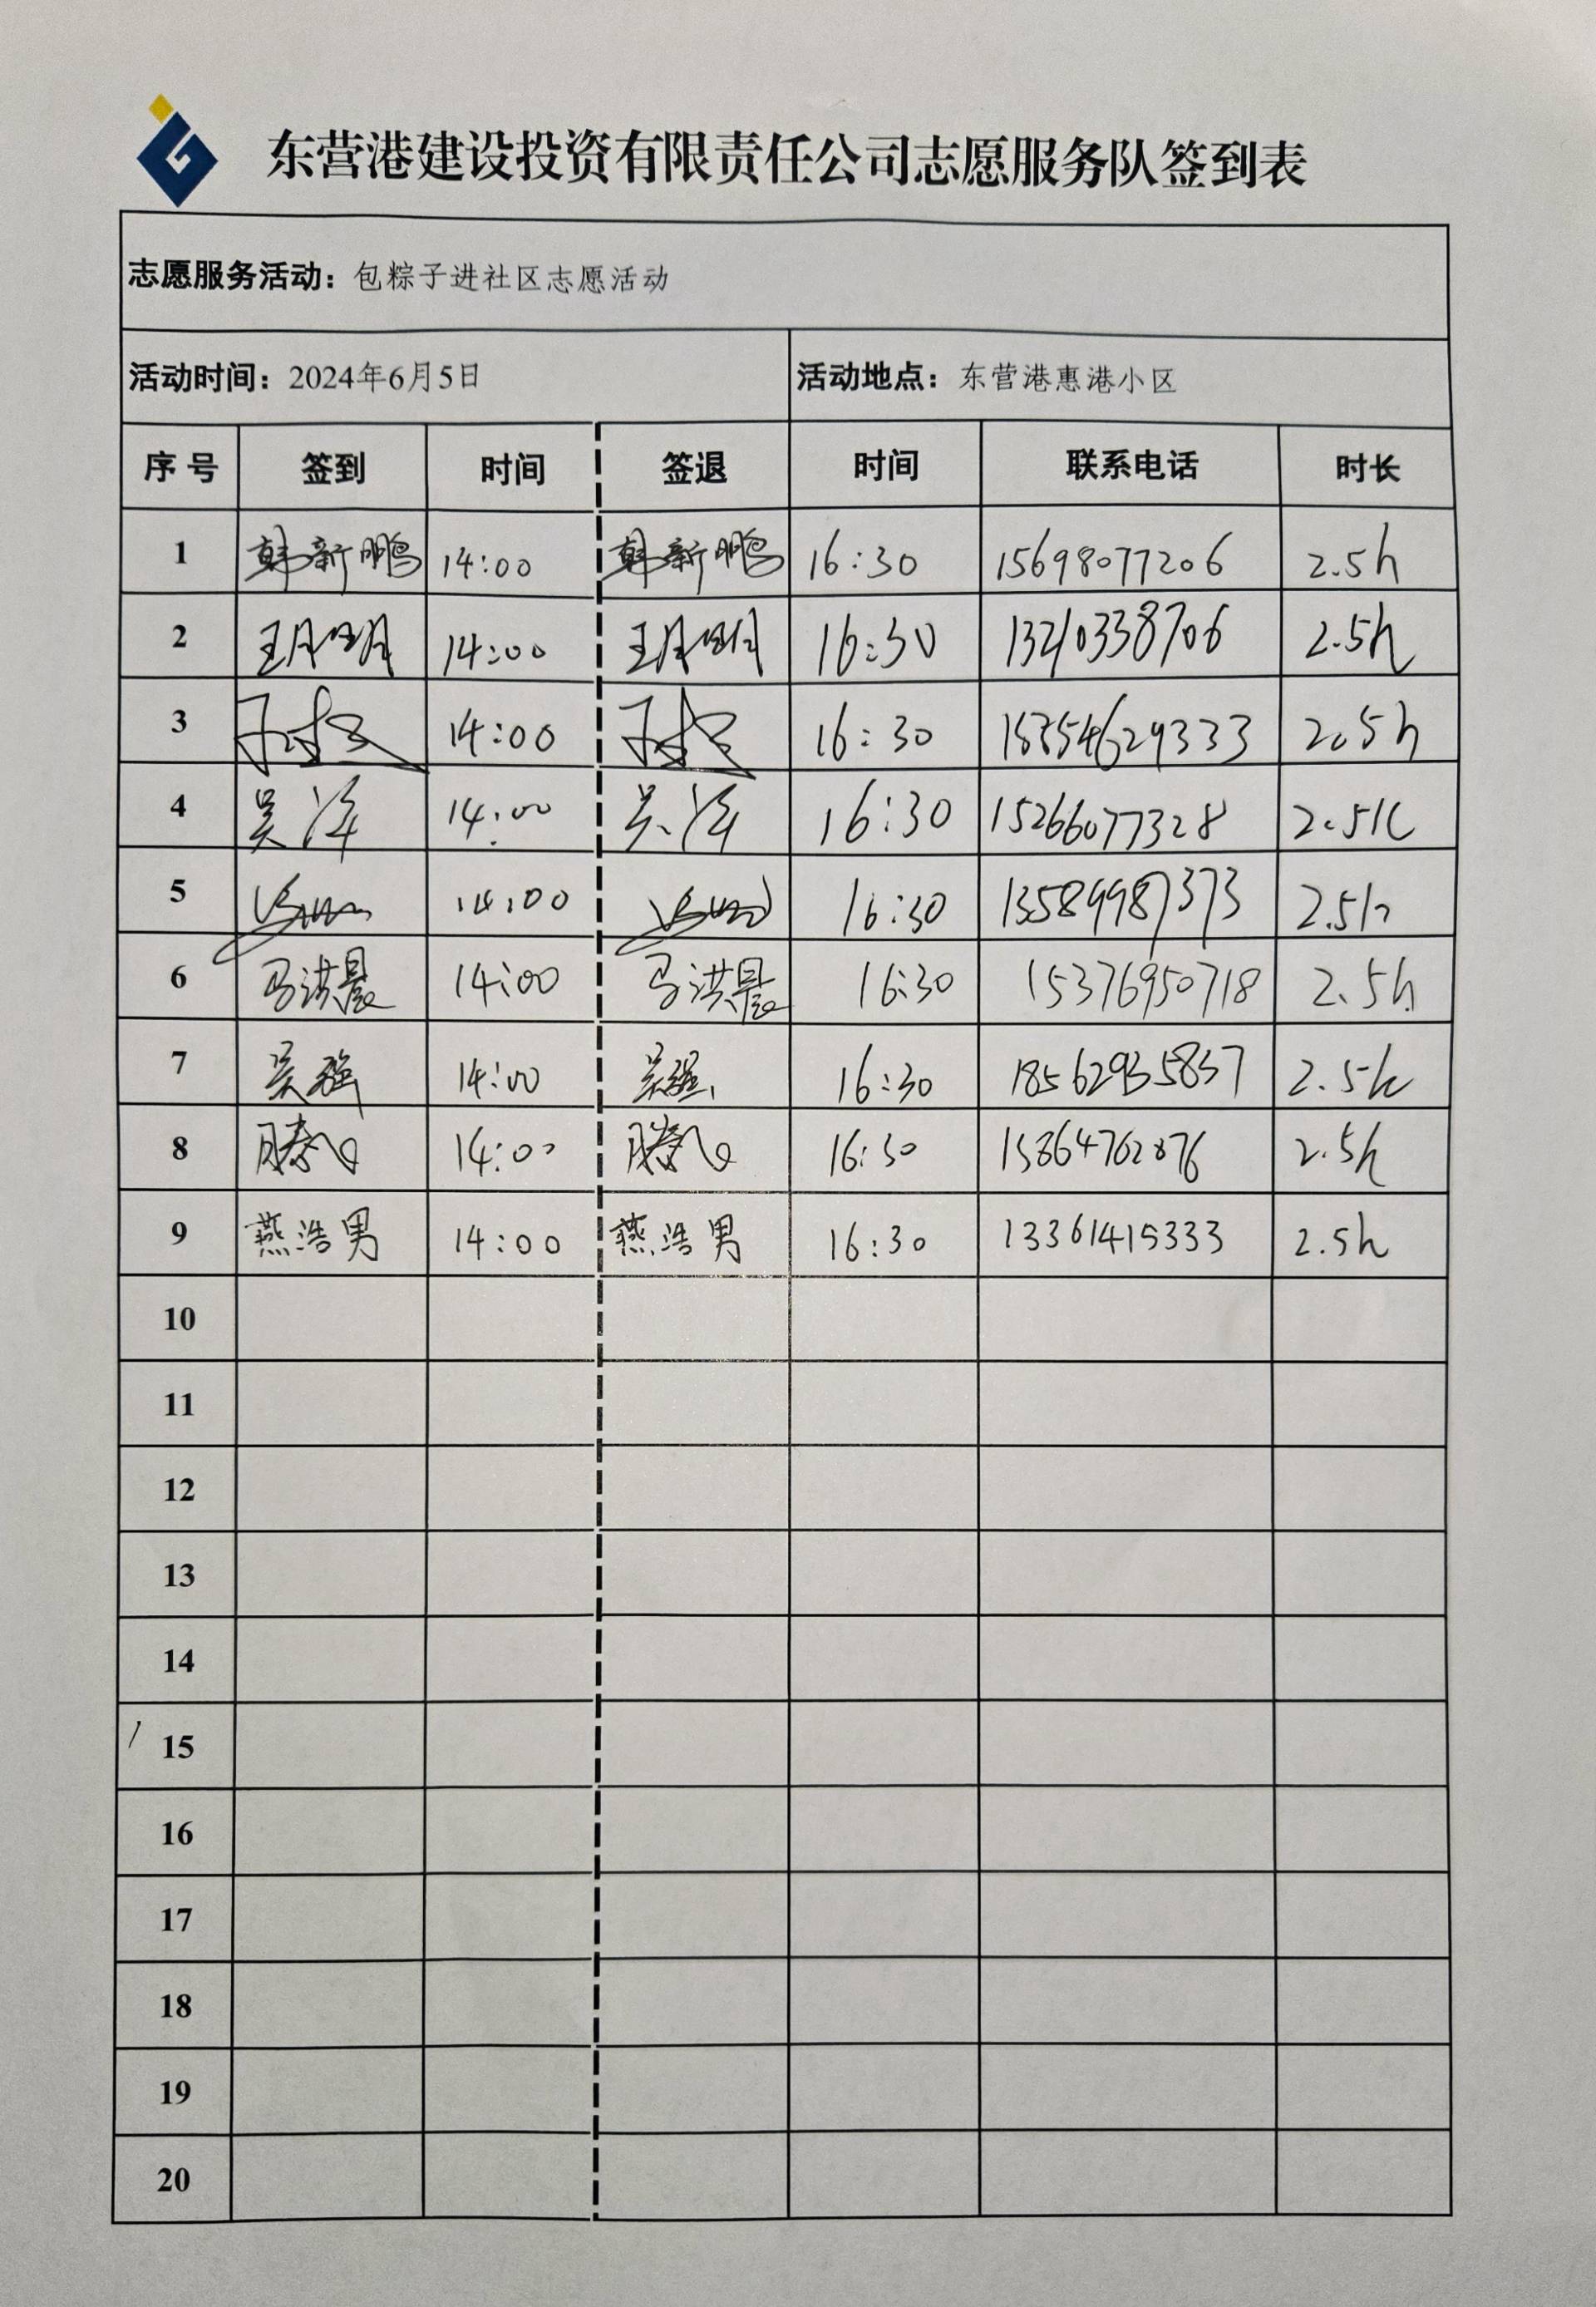 东营港建设投资有限责任公司志愿服务队签到表
志愿服务活动：包粽子进社区志愿活动
活动时间：2024年6月5日 活动地点：东营港惠港小区
序号 签到 时间 签退 时间 联系电话 时长
1 韩新鹏 14:00 韩新鹏 16:30 15698077206 2.5h
2 王月明 14:00 王月明 16:30 13210338706 2.5h
3 14:00 16:30 2.5h
4 吴泽 14:00 吴泽 16:30 15266077328 2.5h
5 14:00 16:30 13589987373 2.5h
6 马洪晨 14:00 马洪晨 16:30 15376950718 2.5h
7 吴强 14:00 吴强 16:30 18562935837 2.5h
8 滕飞 14:00 滕飞 16:30 2.5h
9 燕浩男 14:00 燕浩男 16:30 13361415333 2.5h
10
11
12
13
14
15
16
17
18
19
20